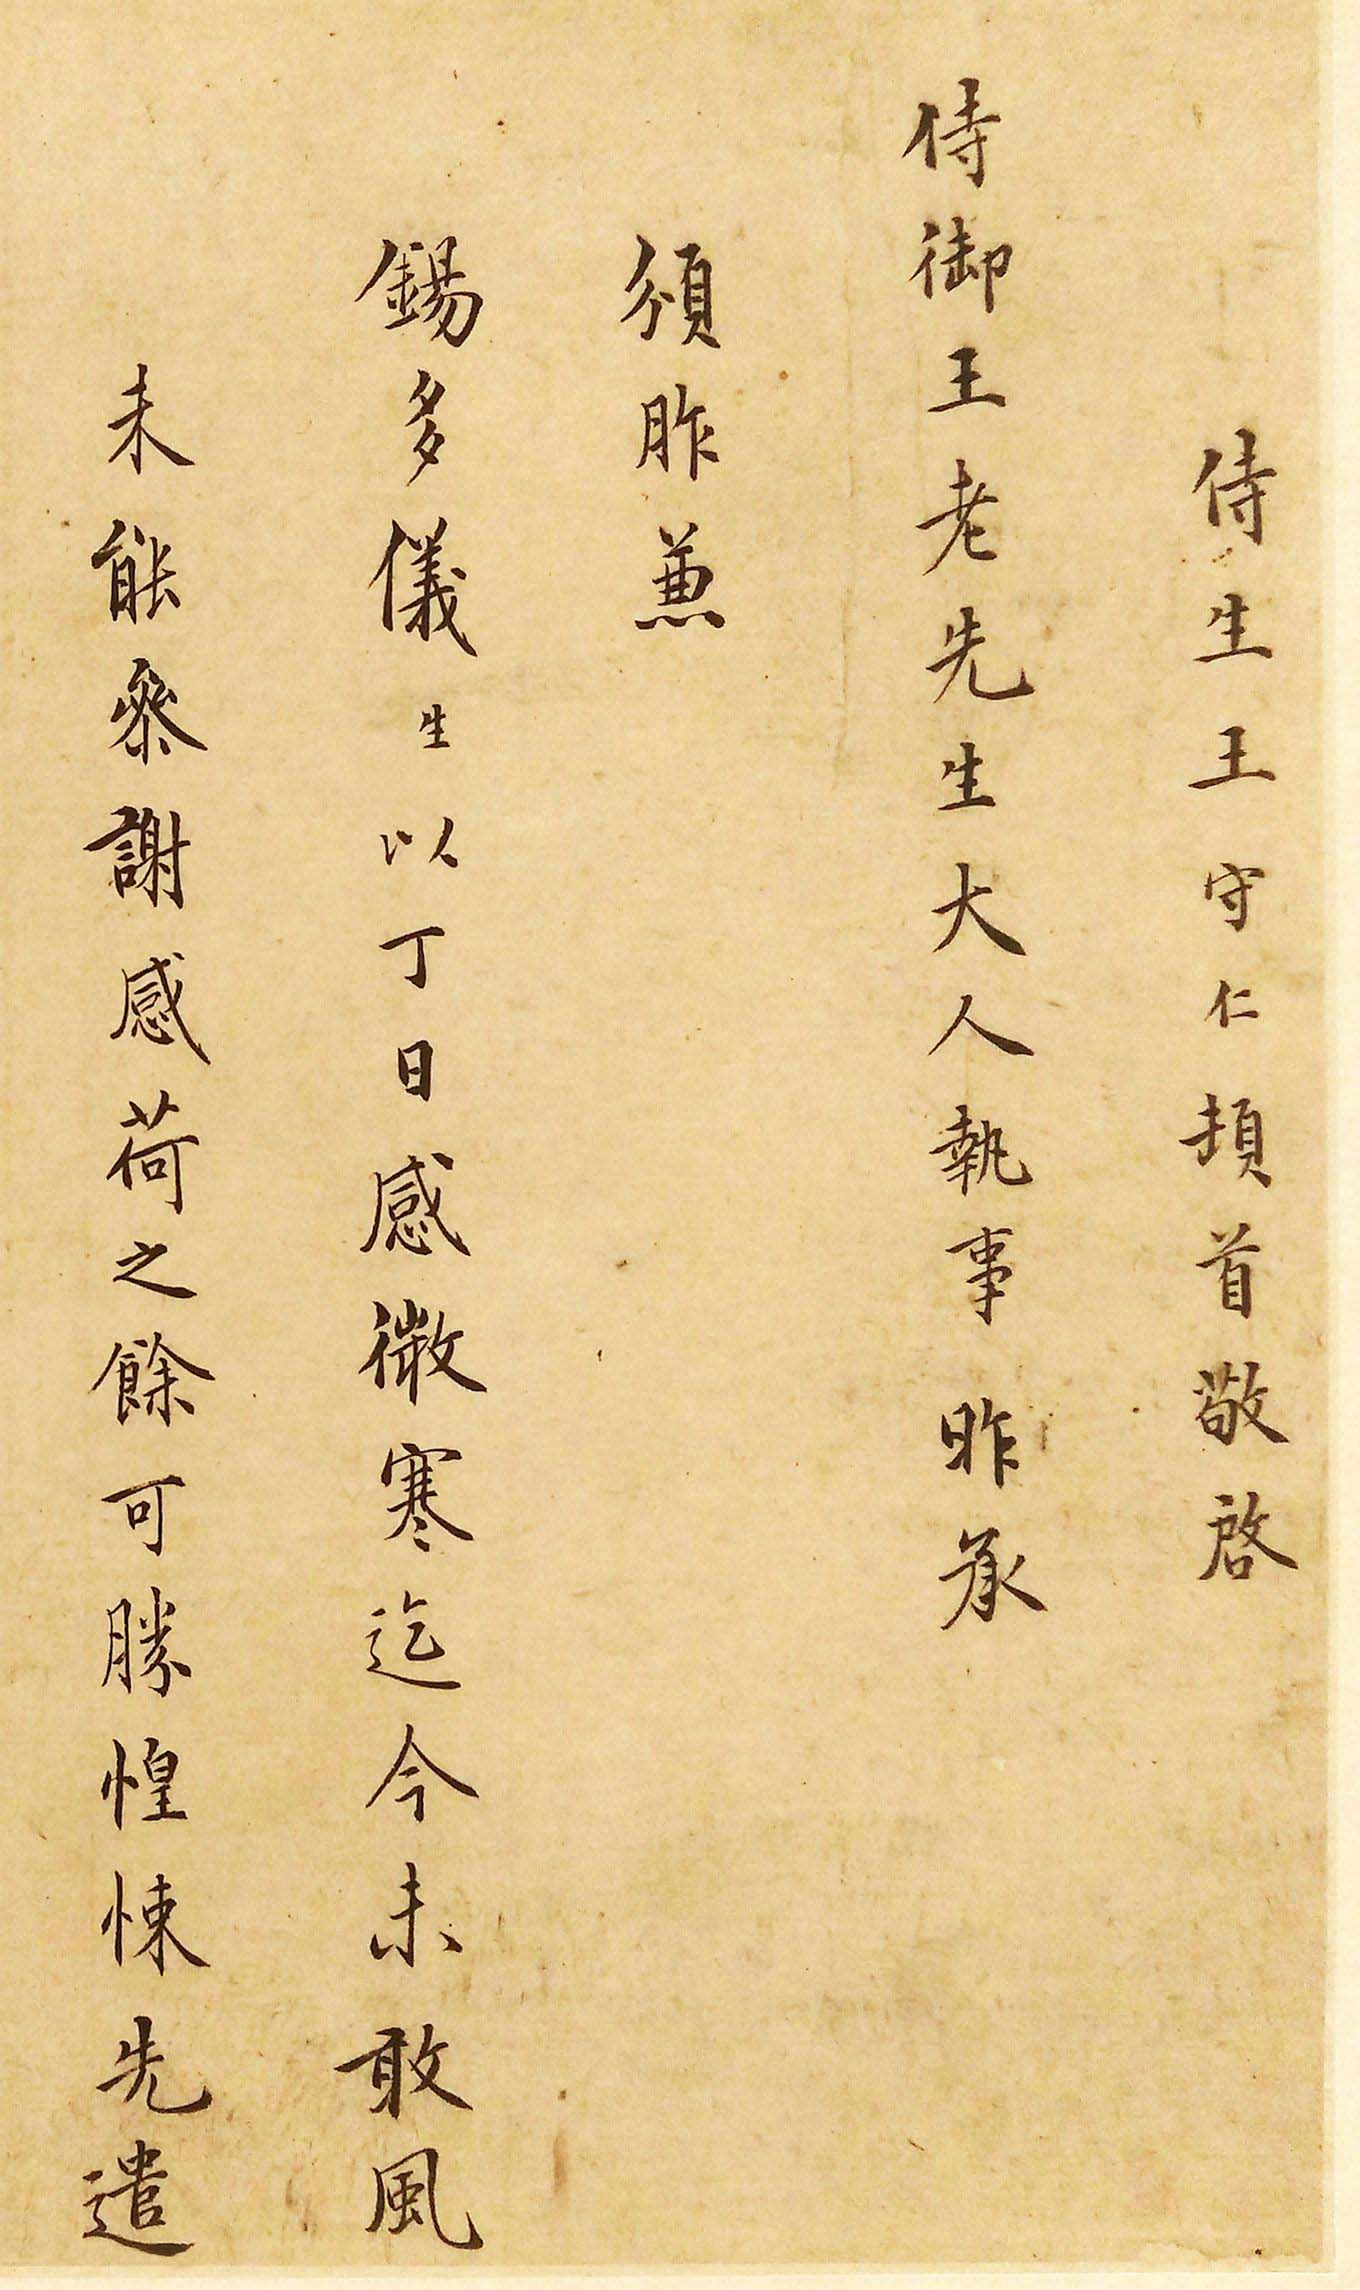 侍生王守仁頓首敬啓
侍御王老先生大人執事昨承
頒胙兼
錫多儀生以丁日感微寒迄今未敢風
未能叅謝感荷之餘可勝惶悚先遣